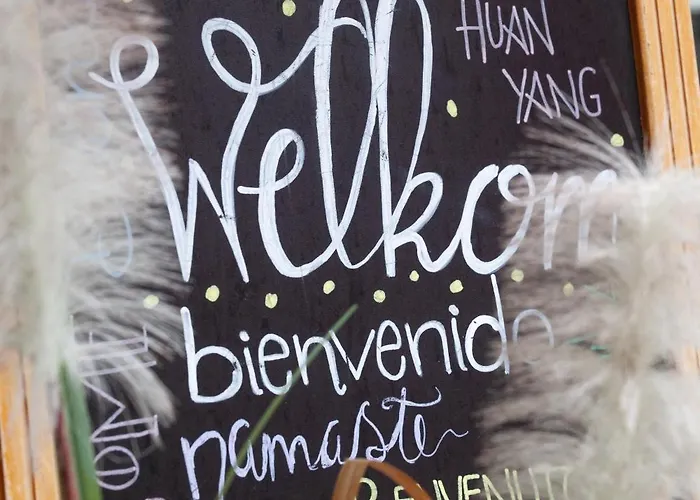 HUAN
YANG
Welkom
bienvenido
namaste
BENVENUTO